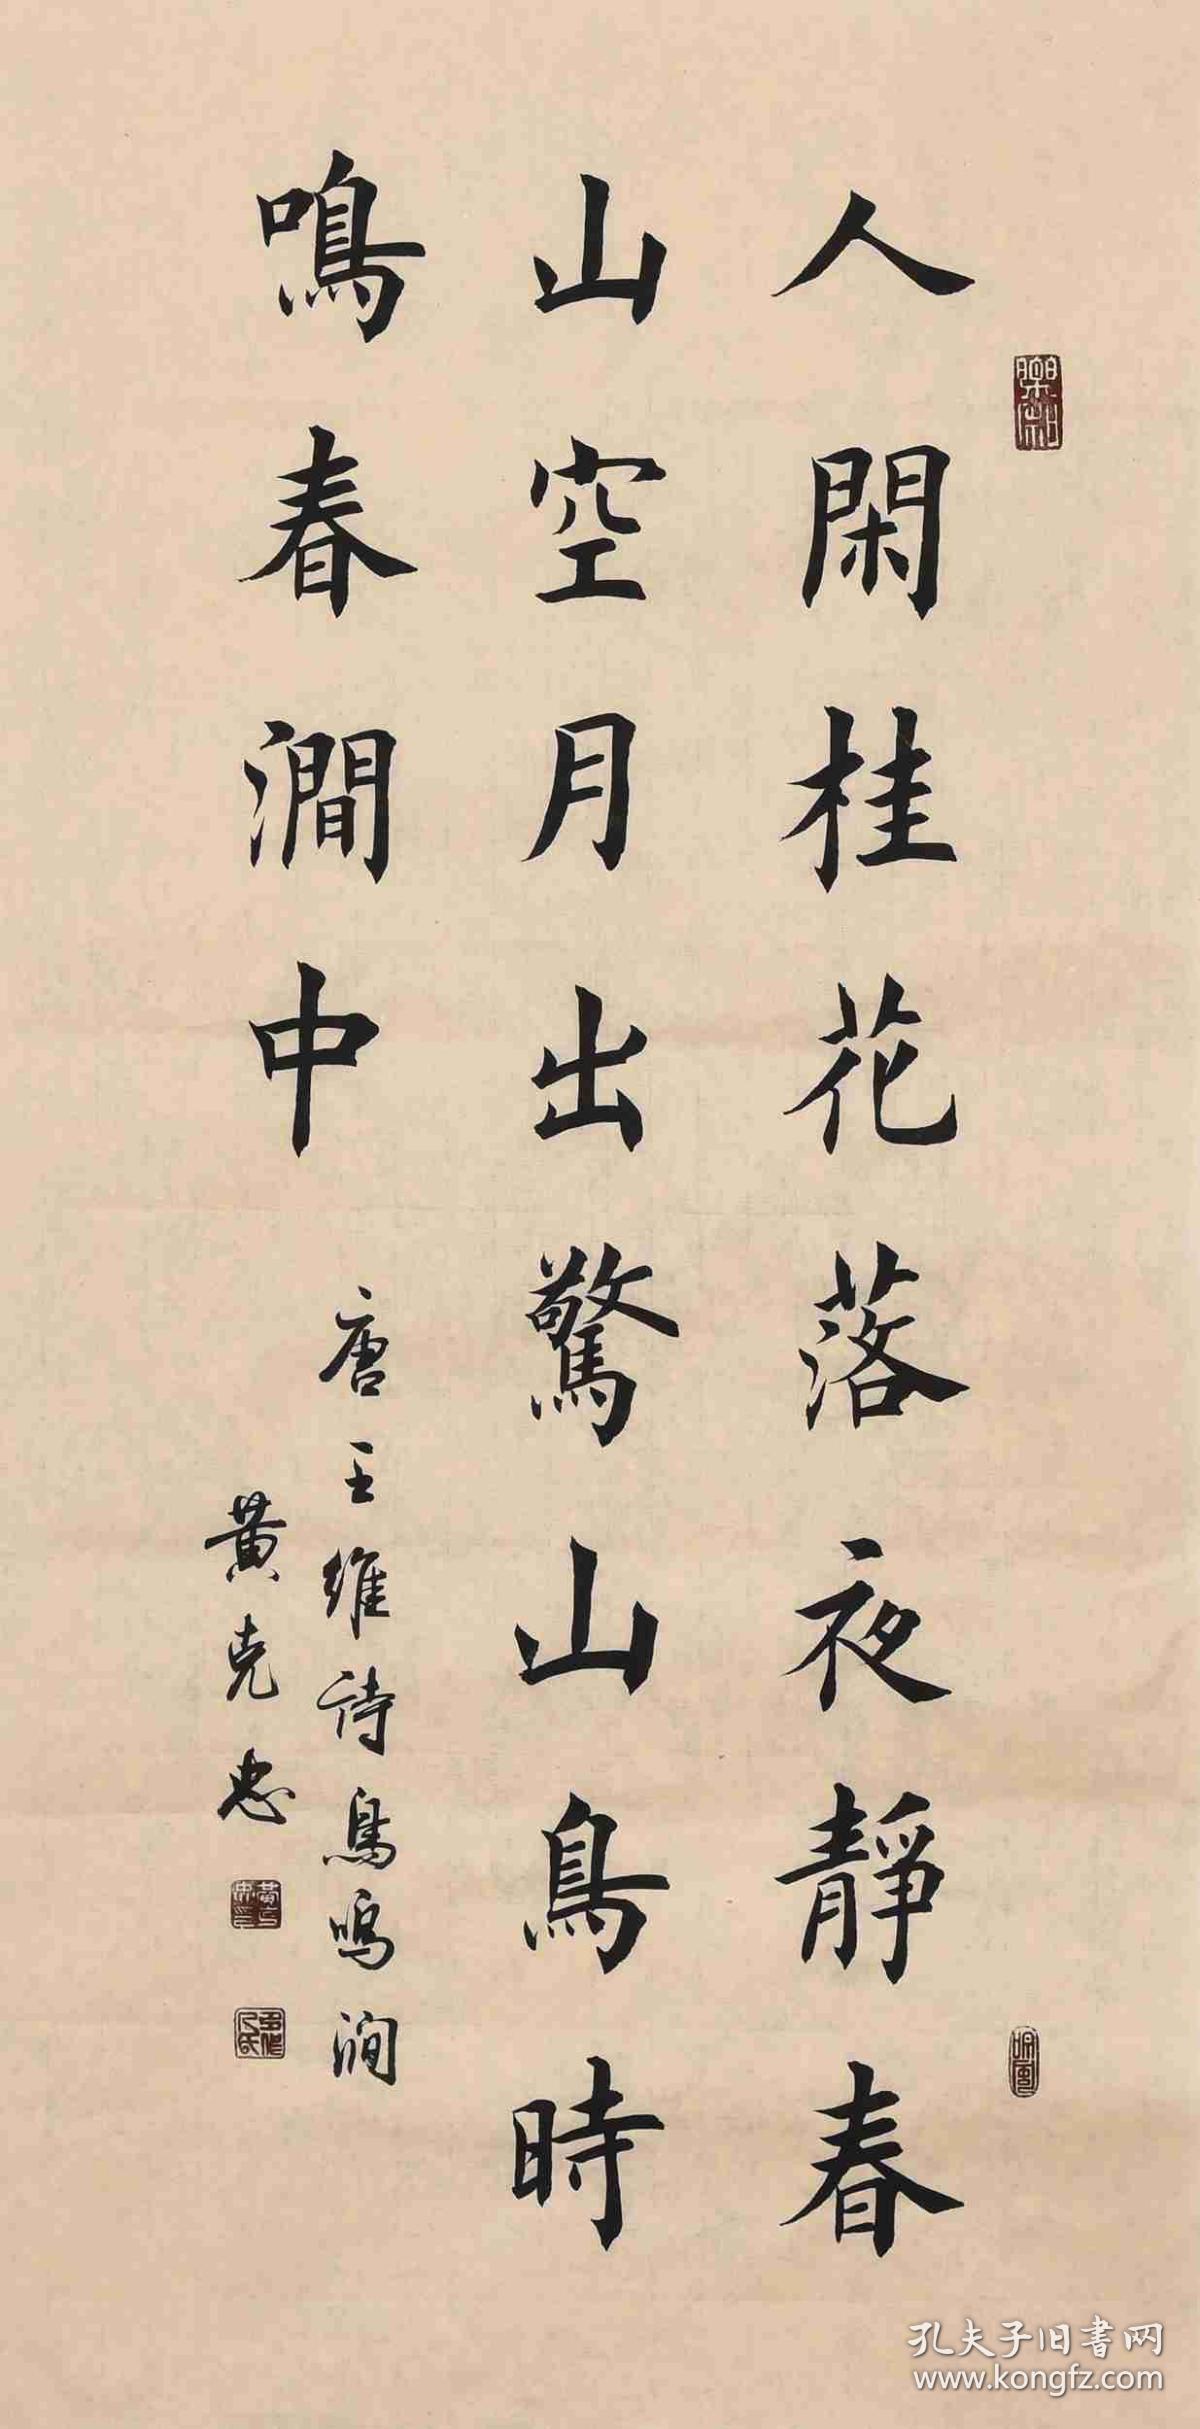 人閑桂花落夜靜春
山空月出驚山鳥時
鳴春澗中
唐王維詩鳥鳴澗
黄克忠
孔夫子旧書网
www.kongfz.com